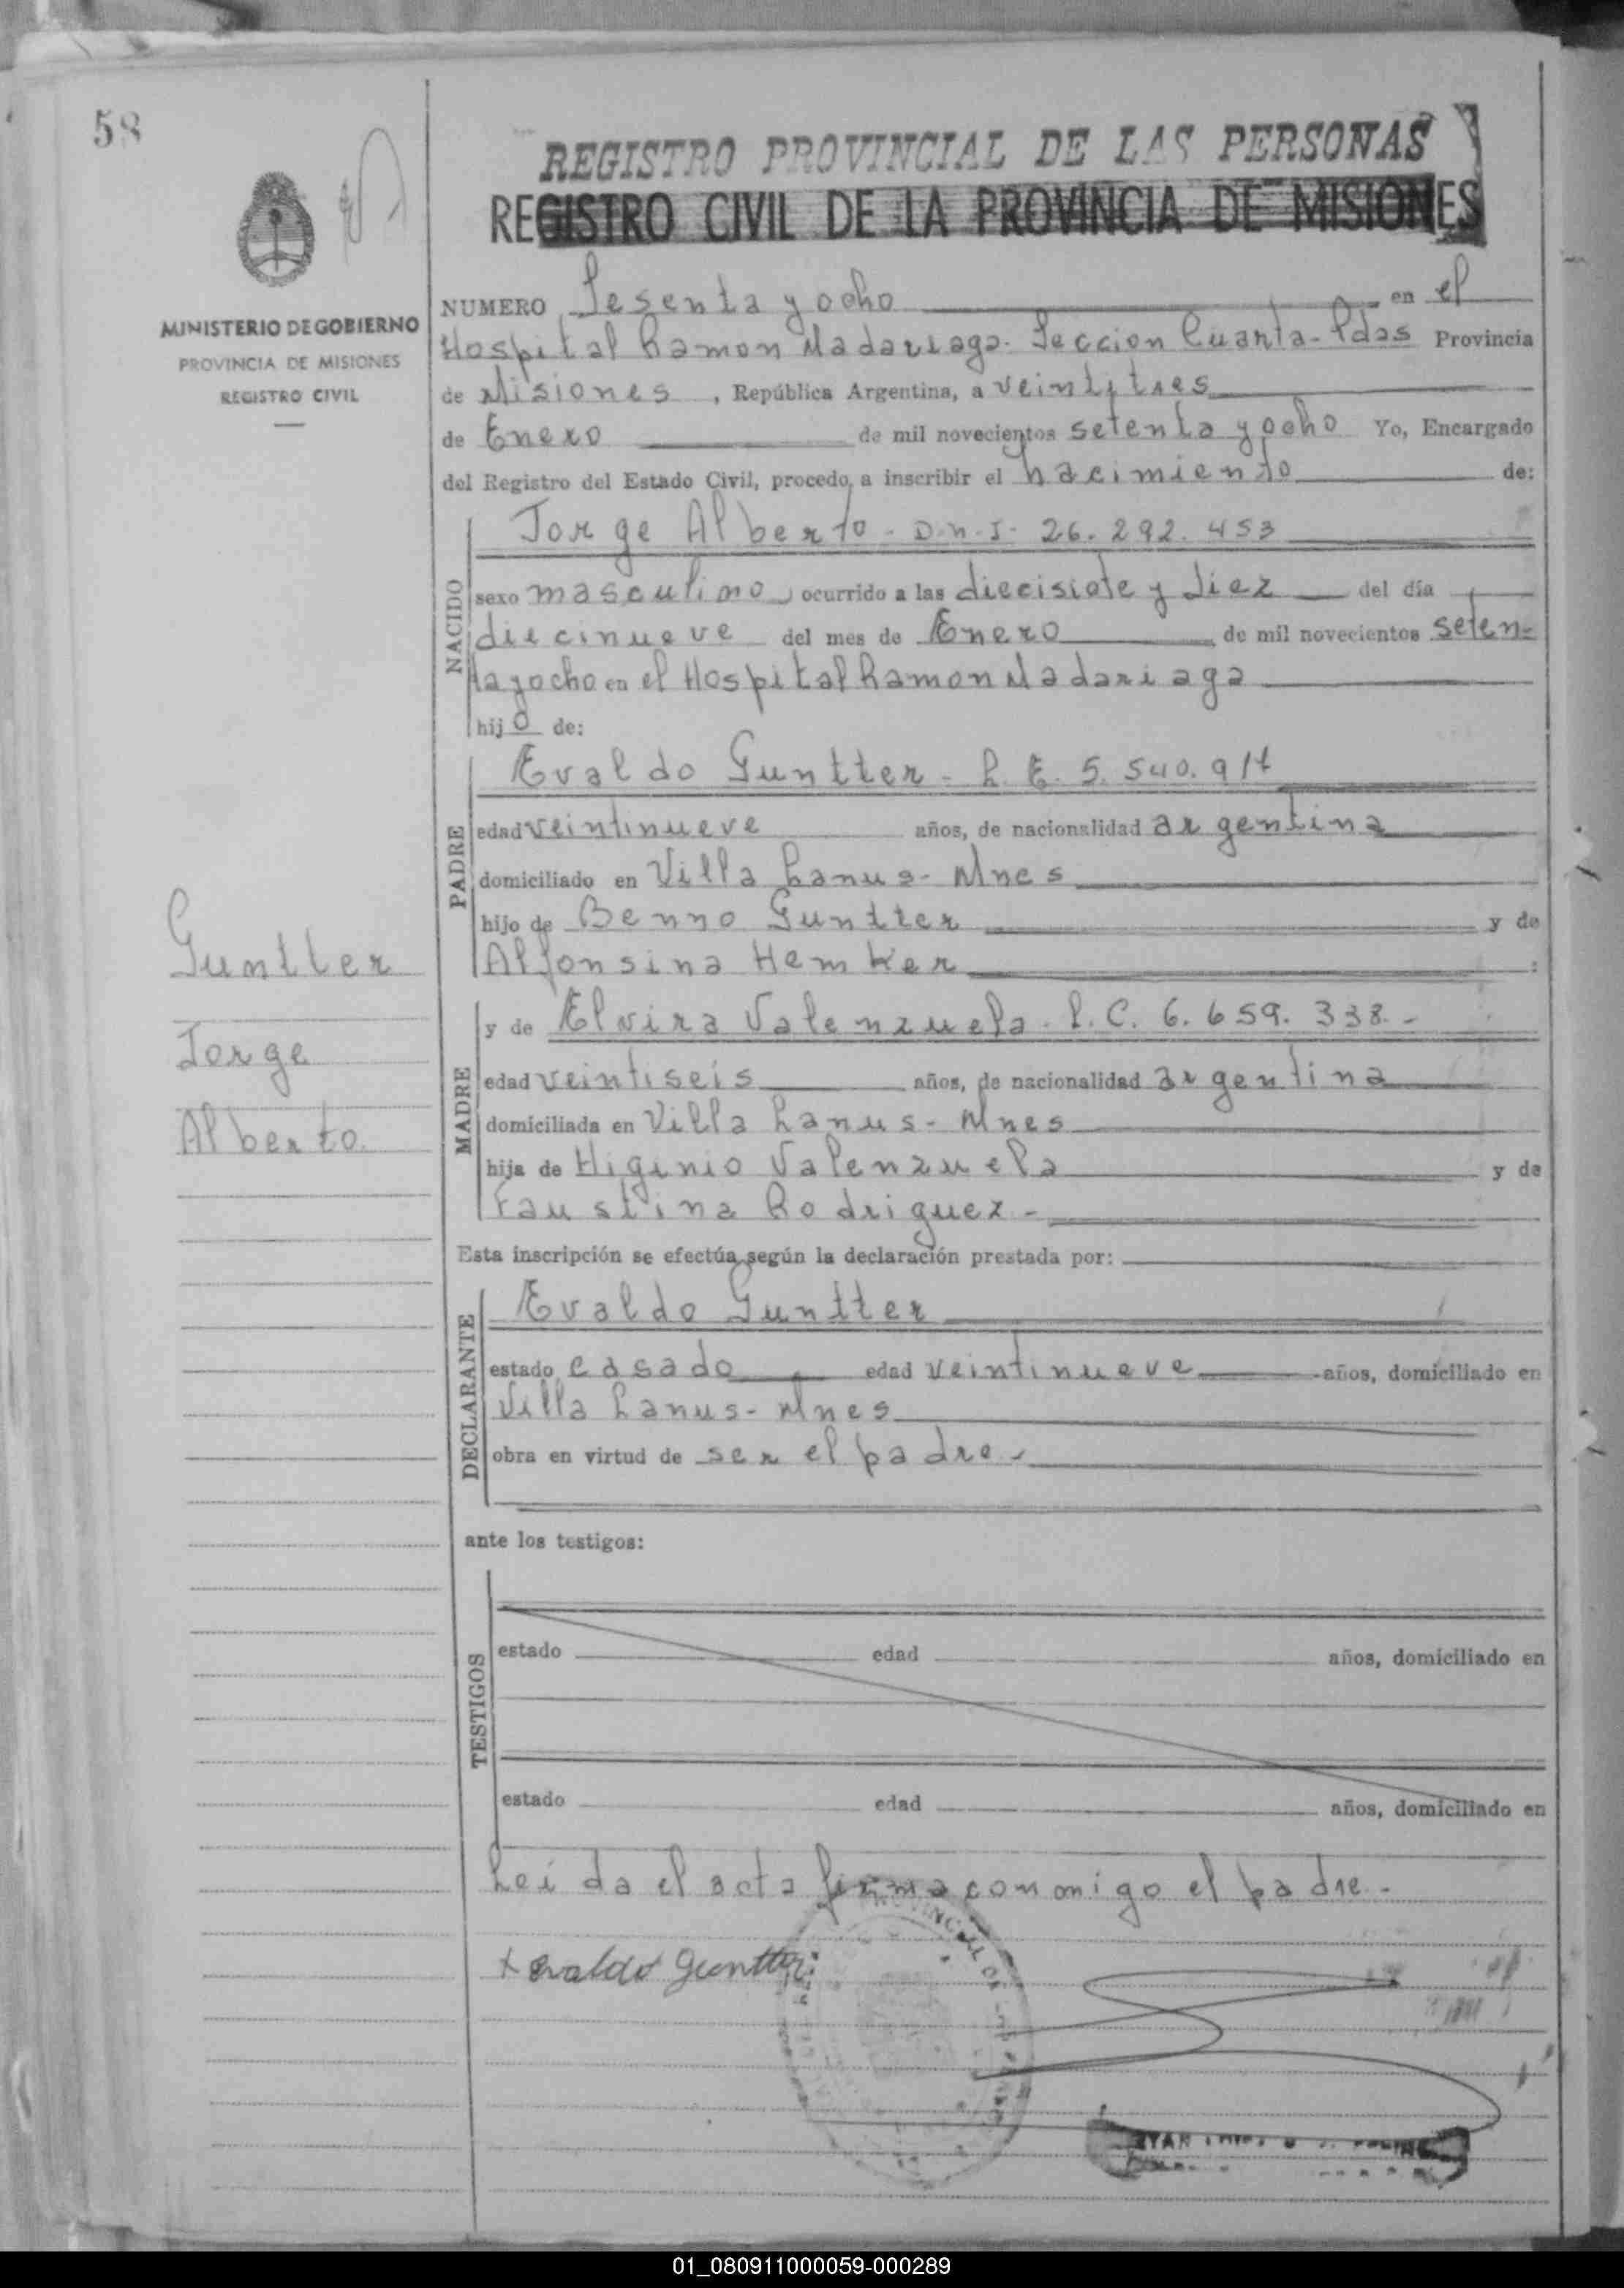 58
REGISTRO PROVINCIAL DE LAS PERSONAS
REGISTRO CIVIL DE LA PROVINCIA DE MISIONES
MINISTERIO DE GOBIERNO
PROVINCIA DE MISIONES
REGISTRO CIVIL
NUMERO Sesenta y ocho en el
Hospital Ramon Madariaga. Seccion Cuarta-Pdas Provincia
de Misiones, República Argentina, a veintitres
de Enero de mil novecientos setenta y ocho Yo, Encargado
del Registro del Estado Civil, procedo a inscribir el nacimiento de:
NACIDO
Jorge Alberto - D.N.I- 26.292.453
sexo masculino, ocurrido a las diecisiete y diez del día
diecinueve del mes de Enero, de mil novecientos seten-
tayocho en el Hospital Ramon Madariaga
hijo de:
PADRE
Evaldo Guntter - L.E. 5.540.917
edad veintinueve años, de nacionalidad argentina
domiciliado en Villa Lanus - Mnes
hijo de Benno Guntter y de
Alfonsina Hemker :
MADRE
y de Elvira Valenzuela. L.C. 6.659.338.-
edad veintiseis años, de nacionalidad argentina
domiciliada en Villa Lanus - Mnes
hija de Higinio Valenzuela y de
Faustina Rodriguez -
Guntter
Jorge
Alberto
Esta inscripción se efectúa según la declaración prestada por:
DECLARANTE
Evaldo Guntter
estado casado edad veintinueve años, domiciliado en
Villa Lanus - Mnes
obra en virtud de ser el padre -
ante los testigos:
TESTIGOS
estado edad años, domiciliado en
estado edad años, domiciliado en
Leída el acta firma conmigo el padre -
x Evaldo Guntter
01_080911000059-000289